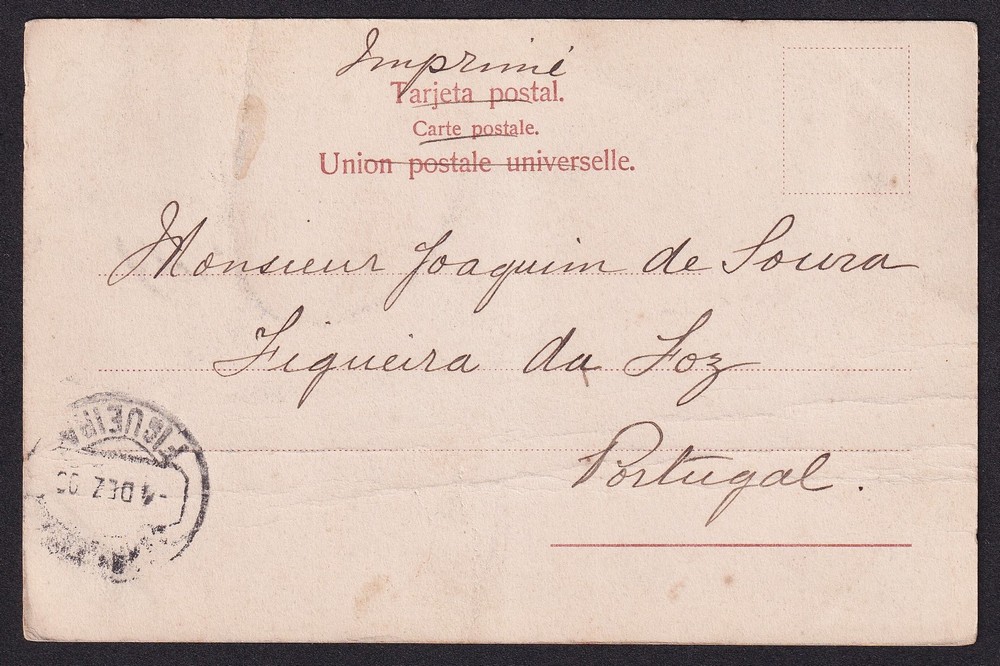 Imprimé
Tarjeta postal.
Carte postale.
Union postale universelle.
Monsieur Joaquim de Souza
Figueira da Foz
Portugal.
FIGUEIRA
4 DEZ